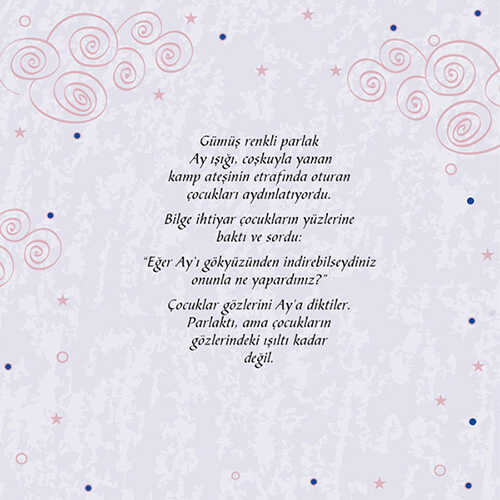 Gümüş renkli parlak
Ay ışığı, coşkuyla yanan
kamp ateşinin etrafında oturan
çocukları aydınlatıyordu.
Bilge ihtiyar çocukların yüzlerine
baktı ve sordu:
“Eğer Ay'ı gökyüzünden indirebilseydiniz
onunla ne yapardınız?”
Çocuklar gözlerini Ay'a diktiler.
Parlaktı, ama çocukların
gözlerindeki ışıltı kadar
değil.